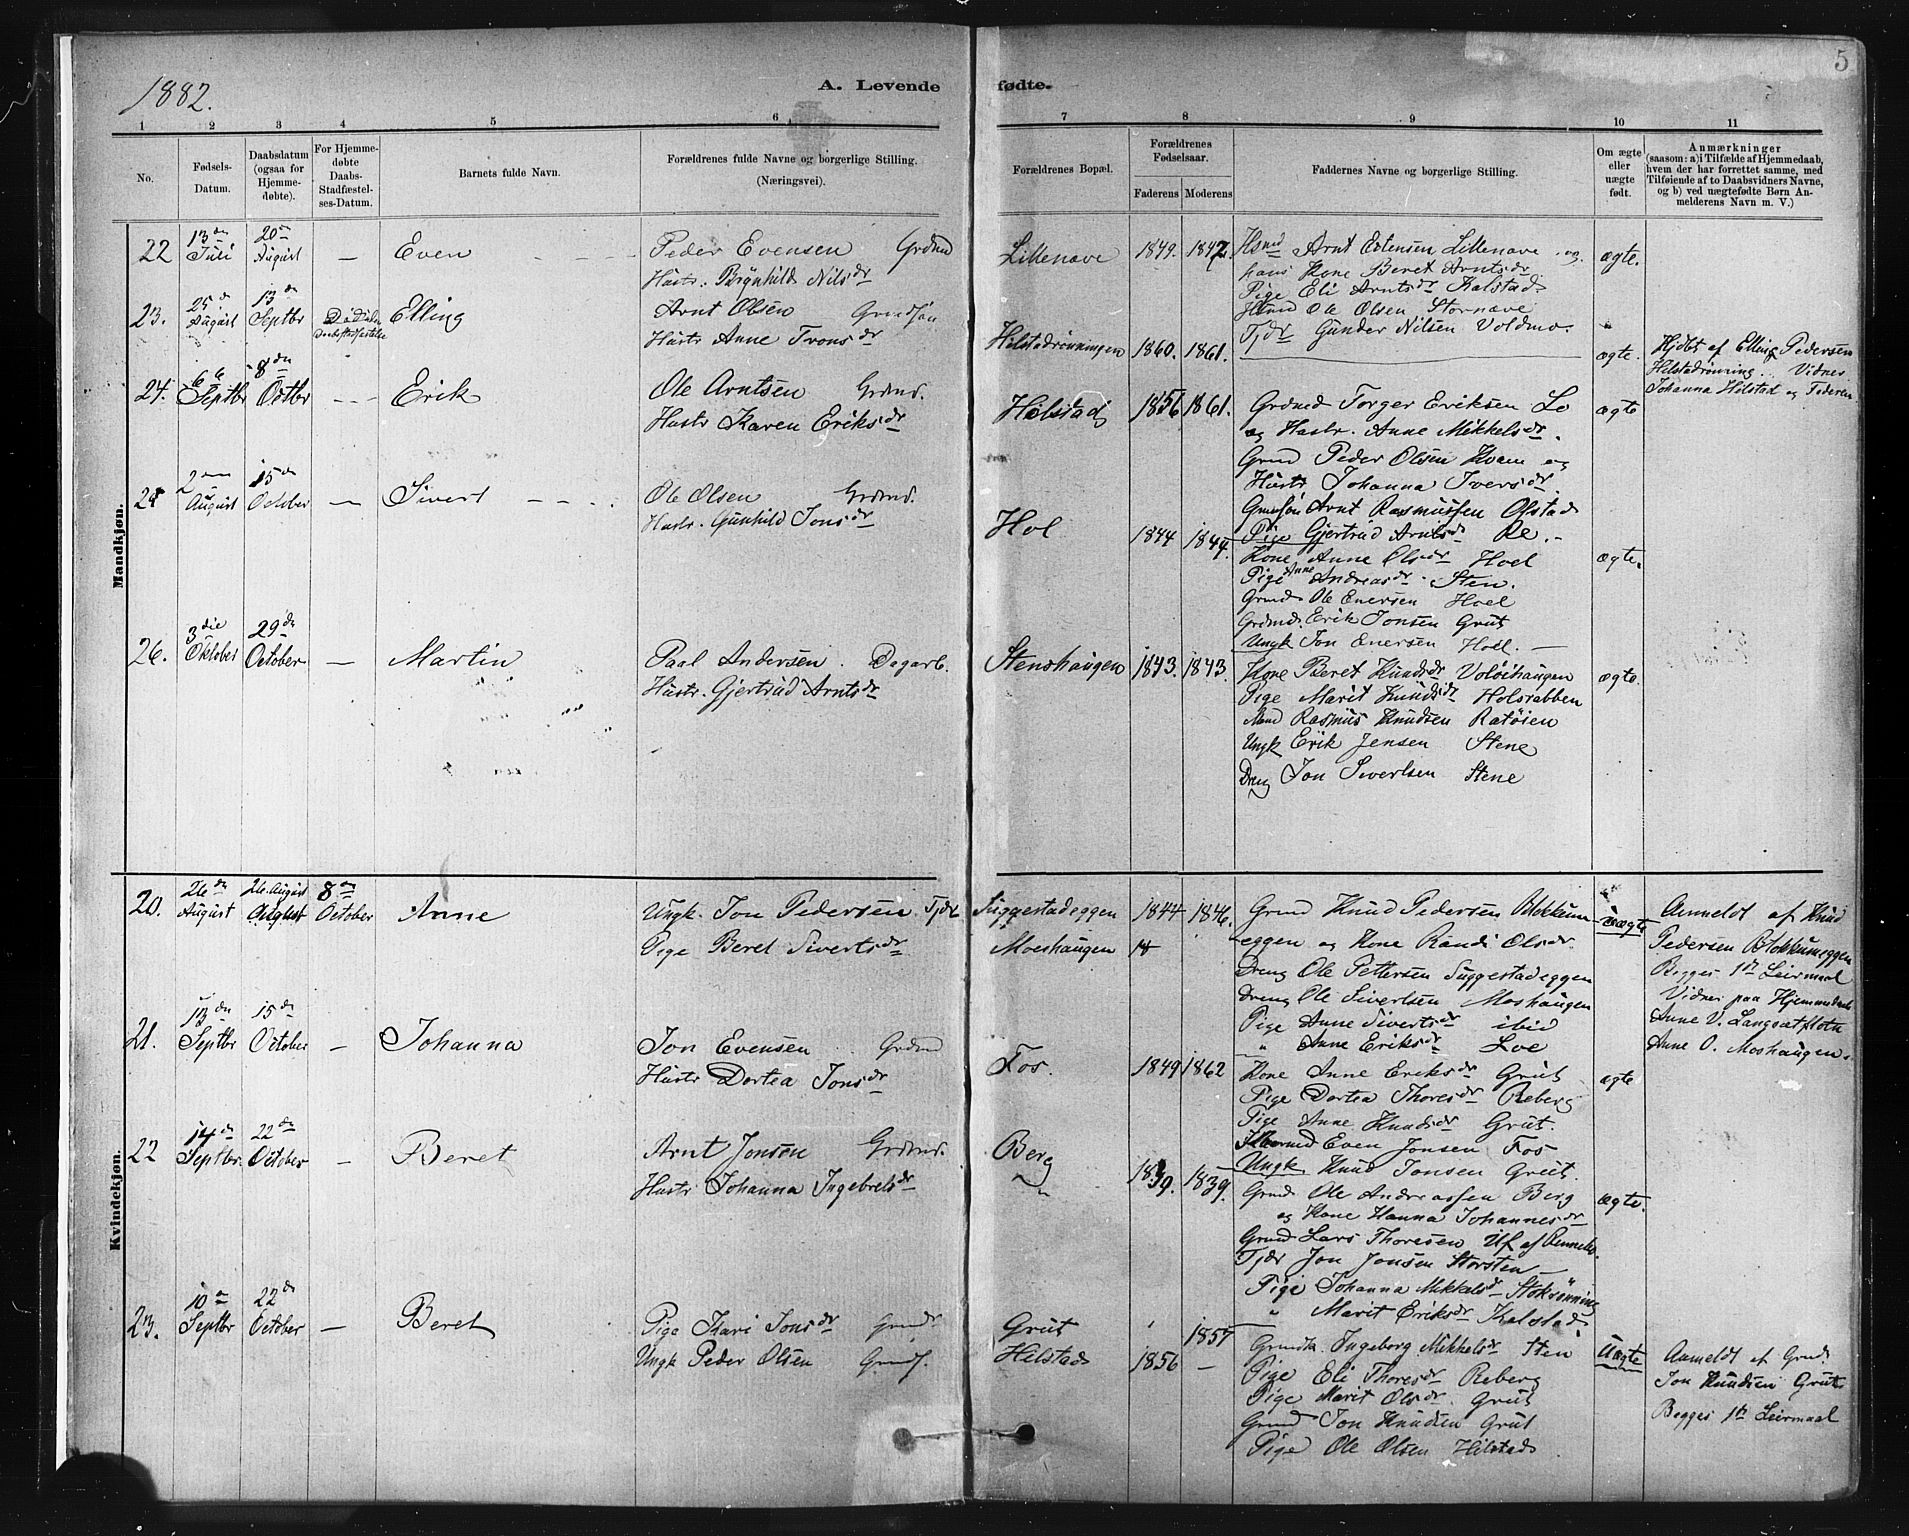 1882.
A. Levende
fødte.
5
1 2 3 4 5 6 7 8 9 10 11
No.
Fødsels-
Datum.
Daabsdatum
(ogsaa for
Hjemme-
døbte).
For Hjemme-
døbte
Daabs-
Stadfæstel-
ses-Datum.
Barnets fulde Navn.
Forældrenes fulde Navne og borgerlige Stilling.
(Næringsvei).
Forældrenes Bopæl.
Forældrenes
Fødselsaar.
Faderens Moderens
Faddernes Navne og borgerlige Stilling.
Om ægte
eller
uægte
født.
Anmærkninger
(saasom: a) i Tilfælde af Hjemmedaab,
hvem der har forrettet samme, med
Tilføiende af to Daabsvidners Navne,
og b) ved uægtefødte Børn An-
melderens Navn m. V.)
Mandkjøn.
22 13de Juli 20de August — Even
Peder Evensen Grdmd
Hustr. Brynhild Nilsdr
Lillenave 1849. 1847.
Hsmd Arnt Estensen Lillenave og
hans Kone Beret Arntsdr
Pige Eli Arntsdr Kalstad
Hsmd Ole Olsen Stornave
Tjdr Gunder Nilsen Voldmo.
ægte.
23. 25de August 13de Septbr Elling
Arnt Olsen
Hustr Anne Tronsdr
Hilstadrønningen 1860. 1861.
ægte.
Hjdbt af Elling Pedersen
Hilstadrønning. Vidner
Johanna Hilstad og Faderen
24. Septbr 8de Octbr Erik
Ole Arntsen Grdmd.
Hustr Karen Eriksdr
Hilstad 1856 1861.
Grdmd Torger Eriksen Lo
og Hustr. Anne Mikkelsdr.
Grmd Peder Olsen Kvam og
Hustr Johanna Iversdr.
Arnt Rasmussen Olstad
Pige Gjertrud Arntsdr Re.
ægte
August 15de October — Sivert
Ole Olsen Grdmd.
Hustr. Gunhild Jonsdr
Hol 1844 1844.
Kone Anne Olsdr Hoel
Pige Anne Andreasdr. Sten.
Grmd. Ole Enersen Hoel
Grdmd. Erik Jonsen Grut
Ungk Jon Enersen Hoel.
ægte.
26. 3die Oktober 29de October — Martin
Paal Andersen. Dagarb.
Hustr. Gjertrud Arntsdr
Stenshaugen 1843. 1843.
Kone Beret Knudsdr Voldshaugen
Pige Marit Knudsdr Holsrabben
Rasmus Knudsen Ratøien
Ungk Erik Jensen Stene
Dreng Jon Sivertsen Stene
ægte.
Kvindekjøn.
20. 26de August 26. August August 8de October Anne
Ungk. Jon Pedersen Tjdr
Pige Beret Sivertsdr
Suggestadeggen 1844 1846.
Moeshaugen
Grmd Knud Pedersen Blokkum-
eggen og Kone Randi Olsdr
Dreng Ole Pettersen Suggestadeggen
Dreng Ole Sivertsen Moshaugen
Pige Anne Sivertsdr ibid
" Anne Eriksdr Loe
uægte
Anmeldt af Knud
Pedersen Blokkumeggen
Begges 1te Leirmaal
Vidner paa Hjemmedaab
Anne V. Langsætfloten
Anne O. Moshaugen.
21. 13de Septbr 15de October — Johanna
Jon Evensen Grdmd
Hustr Dortea Jonsdr
Fos. 1849 1862
Kone Anne Eriksdr Grut
Pige Dortea Thoresdr Reberg
Pige Anne Knudsdr Grut.
Even Jonsen Fos
Ungk Knud Jonsen Grut.
ægte
22 14de Septbr. 22de October — Beret
Arnt Jonsen Grdmd.
Hustr Johanna Ingebretsdr
Berg 1839. 1839.
Grmd. Ole Andreassen Berg
og Kone Hanna Johannesdr
Grmd Lars Thoresen
Tjdr Jon Jonsen Storsten
Pige Johanna Mikkelsdr Stokrønning
" Marit Eriksdr Kalstad
ægte.
23. 10de Septbr 22de October — Beret
Pige Kari Jonsdr
Ungk Peder Olsen
Grut 1857
Hilstad 1856 —
Ingeborg Mikkelsdr Sten
Pige Eli Thoresdr Reberg
Pige Marit Olsdr. Grut
Grmd Jon Knudsen Grut
Pige Ole Olsen Hilstad.
Uægte
Anmeldt af Grmd.
Jon Knudsen Grut
Begges 1te Leirmaal